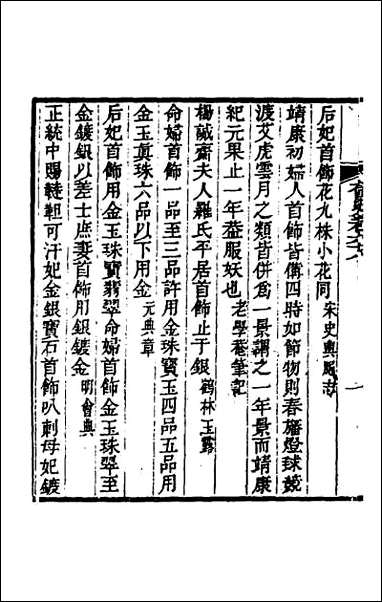 后妃首飾花九株小花同 宋史輿服志
靖康初婦人首飾皆備四時如節物則春旛燈球競
渡艾虎雲月之類皆併為一景謂之一年景而靖康
紀元果止一年葢服妖也 老學菴筆記
楊誠齋夫人羅氏平居首飾止于銀 鶴林玉露
命婦首飾一品至三品許用金珠寶玉四品五品用
金玉真珠六品以下用金 元典章
后妃首飾用金玉珠寶翡翠命婦首飾金玉珠翠至
金鍍銀以差士庶妻首飾用銀鍍金 明會典
正統中賜韃靼可汗妃金銀寶石首飾八剌母妃鍍